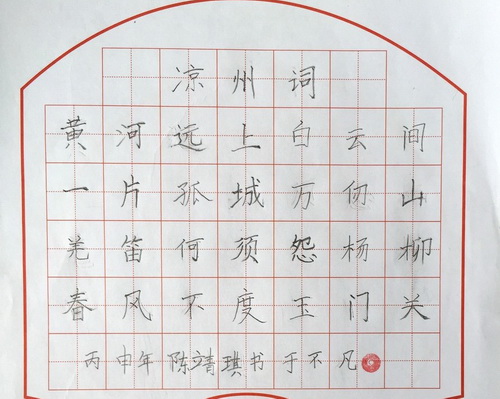 凉州词
黄河远上白云间
一片孤城万仞山
羌笛何须怨杨柳
春风不度玉门关
丙申年 陈靖琪书 于不凡